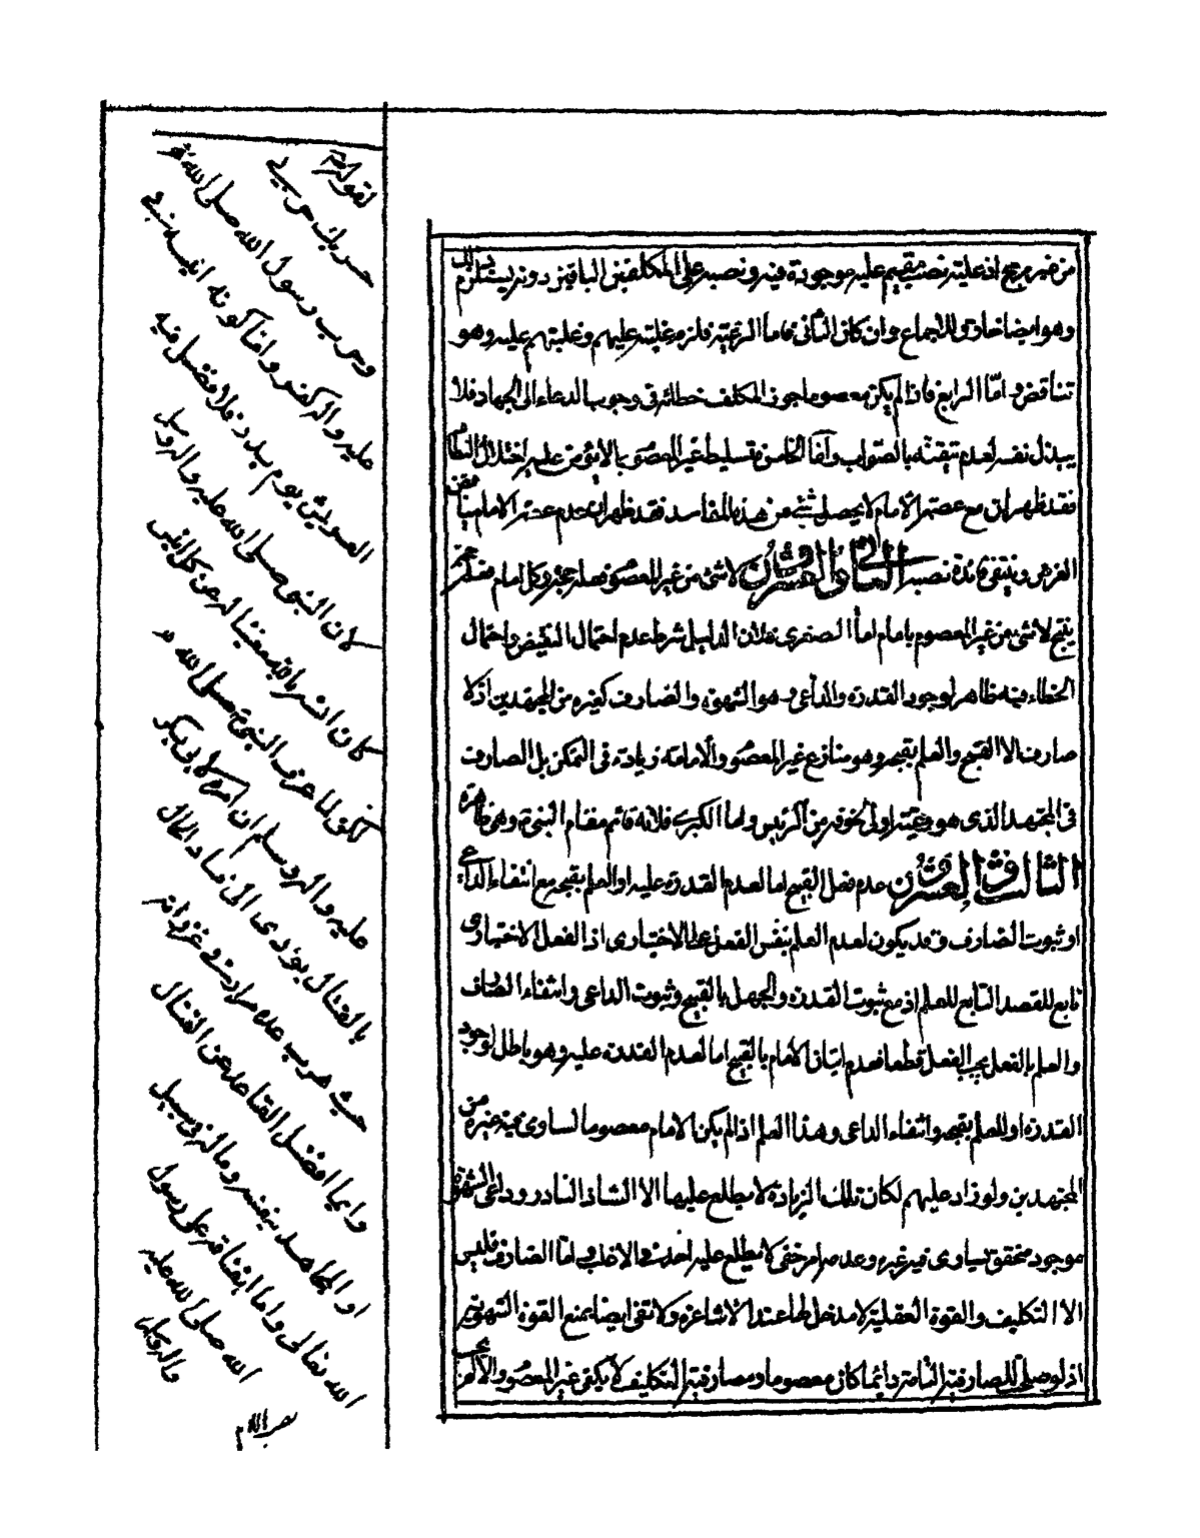 من غير مرجح اذ علية نصب مقيم عليه موجودة فيه ونصبه على المكلفين الباقين دونه يستلزم ذلك
وهو ايضا خلاف للاجماع وان كان الثانى فاما الرعية فلزم غلبته عليهم وغلبتهم عليه وهو
تناقض واما الرابع فاذا لم يكن معصوما جوز المكلف خطائه فى وجوب الدعاء الى الجهاد فلا
يبذل نفسه لعدم تيقنه بالصواب واما الخامس فتسليط غير المعصوم بالا يؤمن عليه اختلال النظام
فقد ظهر ان مع عصمة الامام لا يحصل شئ من هذه المفاسد فقد ظهر ان عدم عصمة الامام
الغرض وينتفى فائدة نصبه الثانى والعشرون لا شئ من غير المعصوم وكل امام
ينتج لا شئ من غير المعصوم بامام اما الصغرى فلان الدليل شرطه عدم احتمال النقيض واحتمال
الخطاء فيه ظاهر لوجود القدرة والداعى وهو الشهوة والصارف كغيره من المجتهدين اذ لا
صارف الا القبح والعلم بقبحه وهو منازع غير المعصوم والامامة زيادة فى التمكن بل الصارف
فى المجتهد الذى هو رعيته اولى لخوفه من الرئيس واما الكبرى فلانه قائم مقام النبى وهى ظاهرة
الثالث والعشرون عدم فعل القبيح اما لعدم القدرة عليه او العلم بقبحه مع انتفاء الداعى
او ثبوت الصارف وقد يكون لعدم العلم بنفس الفعل الاختيارى اذ الفعل الاختيارى
تابع للقصد التابع للعلم اذ مع ثبوت القدرة والجهل بالقبح وثبوت الداعى وانتفاء الصارف
والعلم بالفعل يجب الفعل قطعا فعدم اتيان الامام بالقبيح اما لعدم القدرة عليه وهو باطل لوجود
القدرة او للعلم بقبحه وانتفاء الداعى وهذا العلم اذا لم يكن الامام معصوما لساوى فيه غيره من
المجتهدين ولو زاد عليهم لكان تلك الزيادة لا يطلع عليها الا الشاذ النادر وداعى الشهوة
موجود متحقق يساوى فيه غيره وعدمه امر خفى لا يطلع عليه احد فى الاغلب واما الصارف فليس
الا التكليف والقوة العقلية لا مدخل لها عند الاشاعرة ولا تفى ايضا بمنع القوة الشهوية
اذ لو صلح للصارفية التامة دائما كان معصوما وصارفية التكليف لا يكفى غير المعصوم والا لم
حربك حربى
وحرب رسول الله صلى الله
عليه واله كفر واما كونه
العريش يوم بدر فلا فضل فيه
لان النبى صلى الله عليه واله
كان انسه بالله مغنيا له عن كل انيس
لكن لما عرف النبى صلى الله
عليه واله وسلم ان امره لابى بكر
بالقتال يؤدى الى فساد الحال
حيث هرب عدة مرار فى غزواته
وايما افضل القاعد عن القتال
او المجاهد بنفسه وماله فى سبيل
الله تعالى واما انفاقه على رسول
الله صلى الله عليه
واله